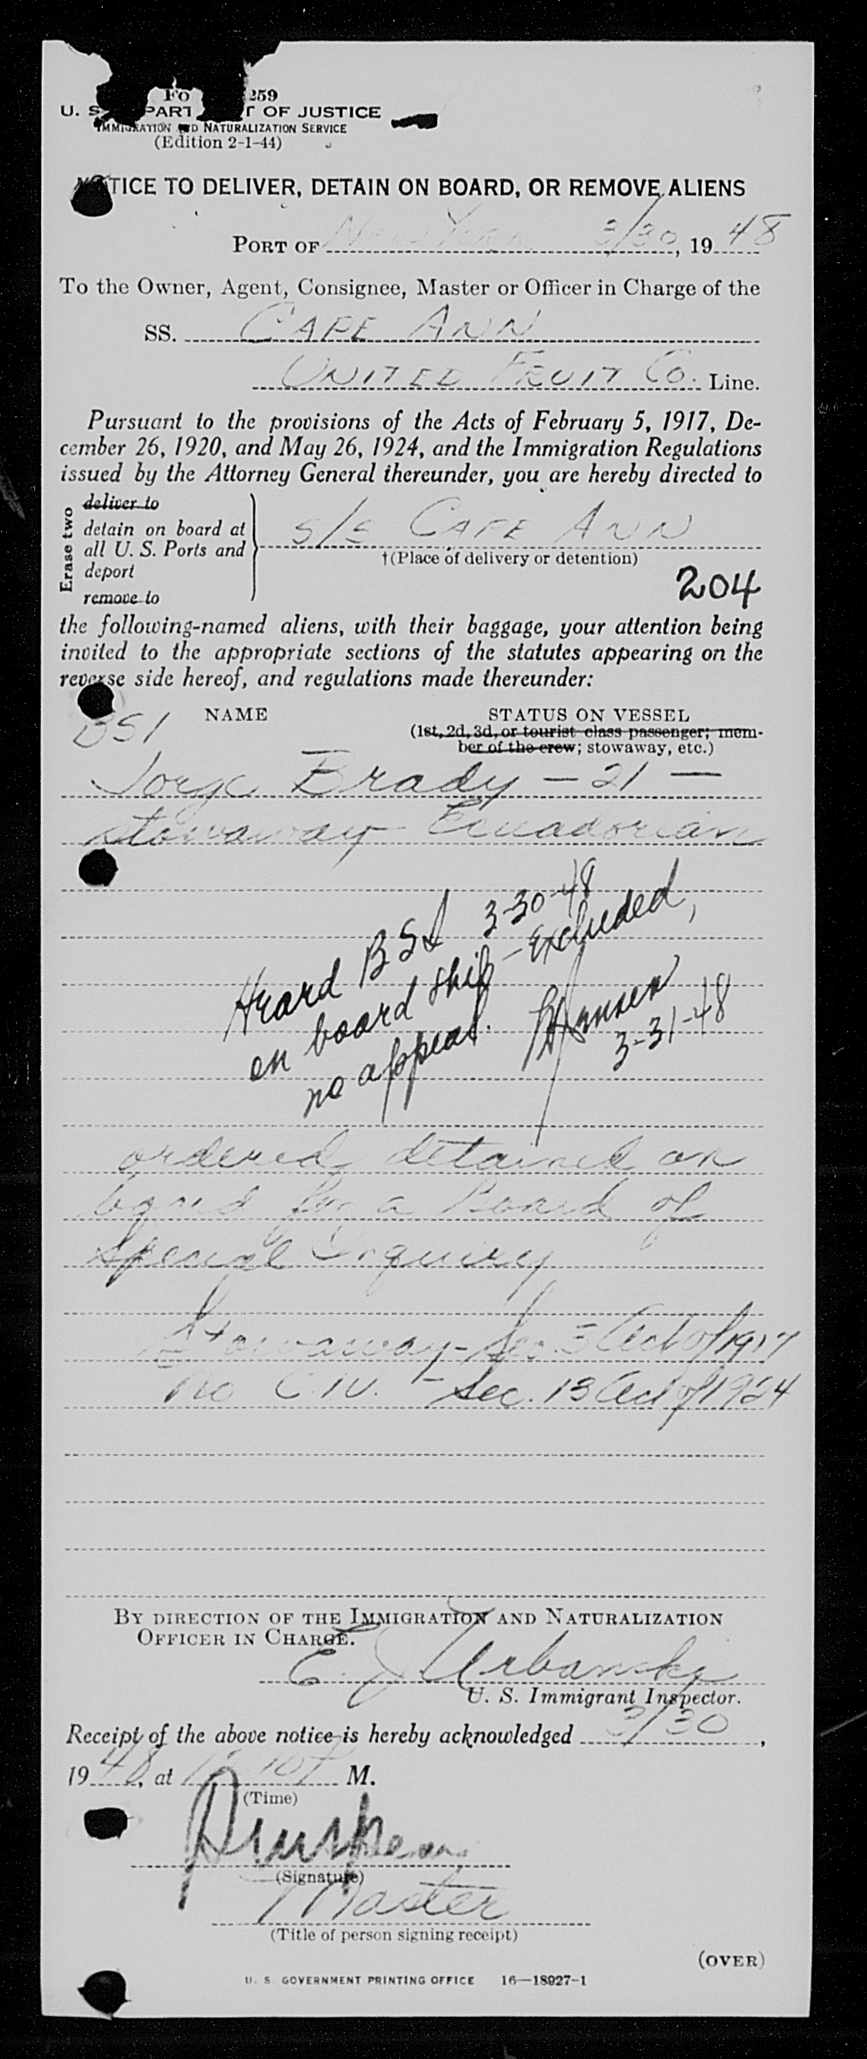 Fo 259
U. S. DEPARTMENT OF JUSTICE
IMMIGRATION AND NATURALIZATION SERVICE
(Edition 2-1-44)
NOTICE TO DELIVER, DETAIN ON BOARD, OR REMOVE ALIENS
PORT OF New York 3/30, 1948
To the Owner, Agent, Consignee, Master or Officer in Charge of the
SS. CAPE ANN
UNITED FRUIT CO. Line.
Pursuant to the provisions of the Acts of February 5, 1917, De-
cember 26, 1920, and May 26, 1924, and the Immigration Regulations
issued by the Attorney General thereunder, you are hereby directed to
Erase two
deliver to
detain on board at
all U. S. Ports and
deport
remove to
S/S CAPE ANN
†(Place of delivery or detention)
204
the following-named aliens, with their baggage, your attention being
invited to the appropriate sections of the statutes appearing on the
reverse side hereof, and regulations made thereunder:
BSI NAME STATUS ON VESSEL
(1st, 2d, 3d, or tourist class passenger; mem-
ber of the crew; stowaway, etc.)
Jorge Brady - 21 -
stowaway Ecuadorian
Heard BSI 3-30-48
on board ship - Excluded,
no appeal. Hansen
3-31-48
ordered detained on
board for a Board of
Special Inquiry
Stowaway - Sec. 3 Act of 1917
no C.I.V. - Sec. 13 Act of 1924
BY DIRECTION OF THE IMMIGRATION AND NATURALIZATION
OFFICER IN CHARGE.
E. J. Urbanski
U. S. Immigrant Inspector.
Receipt of the above notice is hereby acknowledged 3/30,
1948, at M.
(Time)
(Signature)
Master
(Title of person signing receipt)
(OVER)
U. S. GOVERNMENT PRINTING OFFICE 16—18927-1